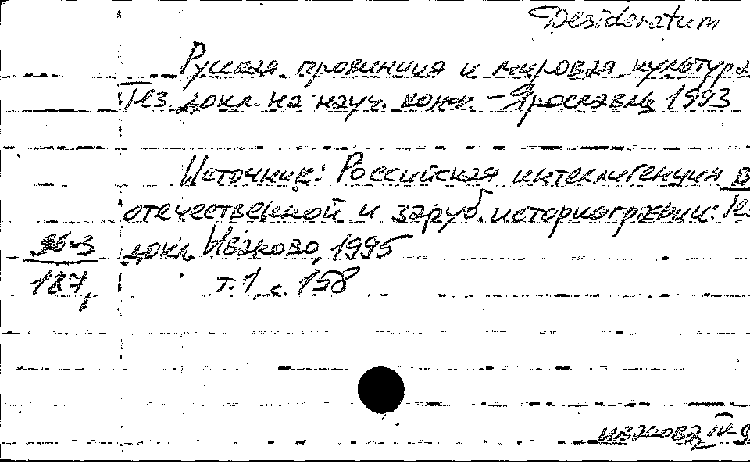 Desideratum
Русская провинция и мировая культура
Тез. докл. на науч. конф. - Ярославль, 1993
Источник: Российская интеллигенция в
отечественной и заруб. историографии: Тез
докл. Иваново, 1995
96-3
187,
т. 1, с. 158
Иванова IV-9